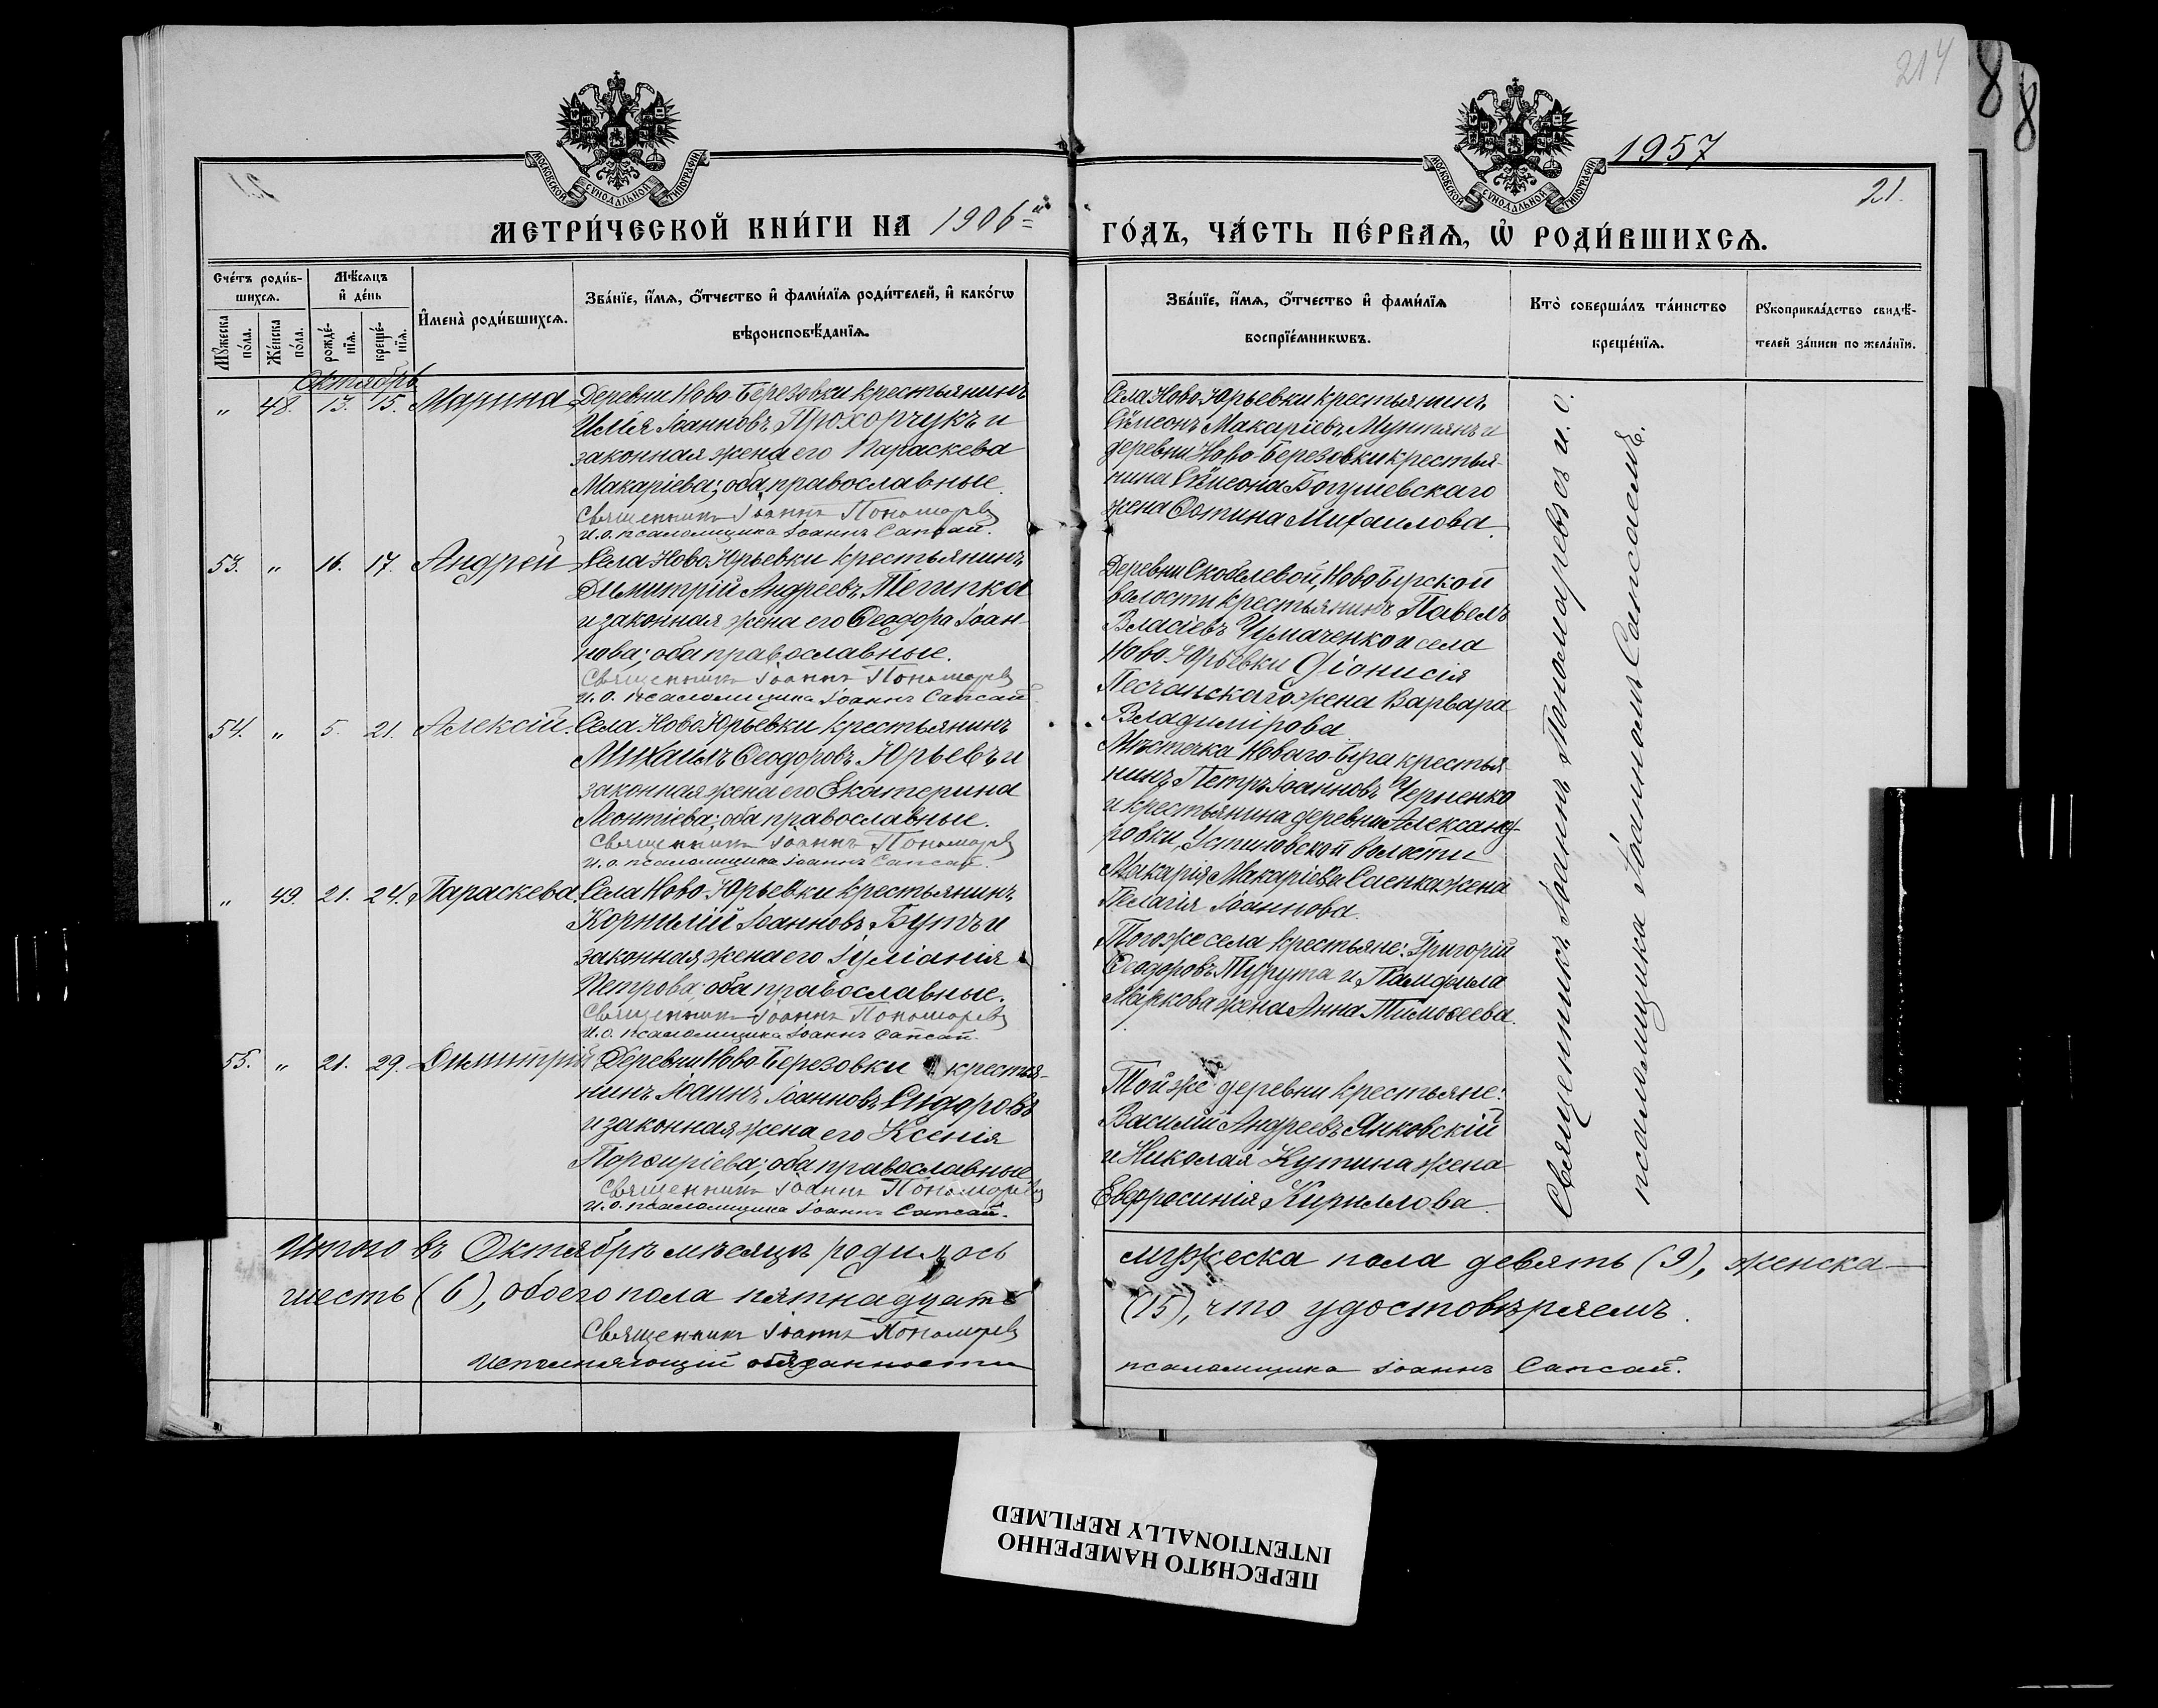 214
8
8
МОСКОВСКОЙ СѴНОДАЛЬНОЙ ТИПОГРАФІИ
МОСКОВСКОЙ СѴНОДАЛЬНОЙ ТИПОГРАФІИ
1957
21.
МЕТРИ́ЧЕСКОЙ КНИ́ГИ НА 1906-й
ГО́ДЪ, ЧА́СТЬ ПЕ́РВАѦ, Ѽ РОДИ́ВШИХСѦ.
Сче́тъ роди́в-
шихсѧ.
Мꙋ́жеска по́ла.
Же́нска по́ла.
Мѣ́сѧцъ
и҆ де́нь
рожде́-
нїѧ.
креще́-
нїѧ.
И҆мена̀ роди́вшихсѧ.
Зва́нїе, и҆́мѧ, ѻ҆́тчество и҆ фами́лїѧ роди́телей, и҆ како́гѡ
вѣроисповѣ́данїѧ.
Зва́нїе, и҆́мѧ, ѻ҆́тчество и҆ фами́лїѧ
воспрїе́мникѡвъ.
Кто̀ соверша́лъ та́инство
креще́нїѧ.
Рꙋкоприкла́дство свидѣ́-
телей за́писи по жела́нїю.
Октябрь
" 48. 13. 15. Марина
Деревни Ново-Березовки крестьянинъ
Илія Іоанновъ Прохорчукъ и
законная жена его Параскева
Макаріева; оба православные.
Священникъ Іоаннъ Пономаревъ
И.о. псаломщика Іоаннъ Сапсай.
Села Ново-Юрьевки крестьянинъ
Сѵмеонъ Макаріевъ Мунтянъ и
деревни Ново-Березовки крестья-
нина Сѵмеона Богушевскаго
жена Фотина Михаилова.
53. " 16. 17. Андрей
Села Ново Юрьевки крестьянинъ
Димитрій Андреевъ Тегипка
и законная жена его Ѳеодора Іоан-
нова; оба православные.
Священникъ Іоаннъ Пономаревъ
И.о. псаломщика Іоаннъ Сапсай
Деревни Скобелевой, Новобугской
волости крестьянинъ Павелъ
Власіевъ Чумаченко и села
Ново-Юрьевки Діонисія
Песчанскаго жена Варвара
Владимірова.
54. " 5. 21. Алексій.
Села Ново Юрьевки крестьянинъ
Михаилъ Ѳеодоровъ Юрьевъ и
законная жена его Екатерина
Леонтіева; оба православные.
Священникъ Іоаннъ Пономаревъ
И.о. псаломщика Іоаннъ Сапсай.
Мѣстечка Новаго-Буга крестья-
нинъ Петръ Іоанновъ Черненко
и крестьянина деревни Александ-
ровки, Устиновской волости
Макарія Макаріева Саенка жена
Пелагія Іоаннова.
" 49. 21. 24. Параскева.
Села Ново-Юрьевки крестьянинъ
Корнилій Іоанновъ Бутъ и
законная жена его Іуліанія
Петрова, оба православные.
Священникъ Іоаннъ Пономаревъ
И.о. псаломщика Іоаннъ Сапсай.
Того же села крестьяне: Григорій
Ѳеодоровъ Турута и Памфила
Маркова жена Анна Тимоѳеева.
55. " 21. 29. Димитрій
Деревни Ново-Березовки крестья-
нинъ Іоаннъ Іоанновъ Сидоровъ
и законная жена его Ксенія
Порфиріева; оба православные
Священникъ Іоаннъ Пономаревъ
И.о. псаломщика Іоаннъ Сапсай.
Той же деревни крестьяне:
Василій Андреевъ Янковскій
и Николая Кутина жена
Евфросинія Кириллова.
Священникъ Іоаннъ Пономаревъ съ и. о.
псаломщика Іоанномъ Сапсаемъ.
Итого въ Октябрѣ мѣсяцѣ родилось
мужеска пола девять (9), женска
шесть (6), обоего пола пятнадцать
(15), что удостовѣряемъ.
Священникъ Іоаннъ Пономаревъ
Исполняющій обязанности
псаломщика Іоаннъ Сапсай.
ПЕРЕСНЯТО НАМЕРЕННО
INTENTIONALLY REFILMED